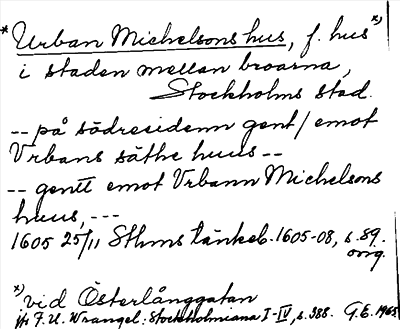 * Urban Michelsons hus, f. hus *)
i staden mellan broarna,
Stockholms stad.
-- på södresidenn gent / emot
Vrbans säthe huus --
-- gentt emot Vrbann Michelsons
huus, ---
1605 25/11 Sthms tänkeb. 1605-08, s. 89.
orig.
*) vid Österlånggatan
F. U. Wrangel: Stockholmiana I-IV, s. 388. G.E. 1963